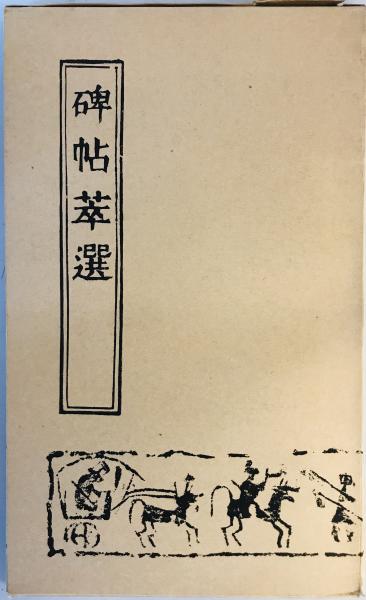 碑帖萃選